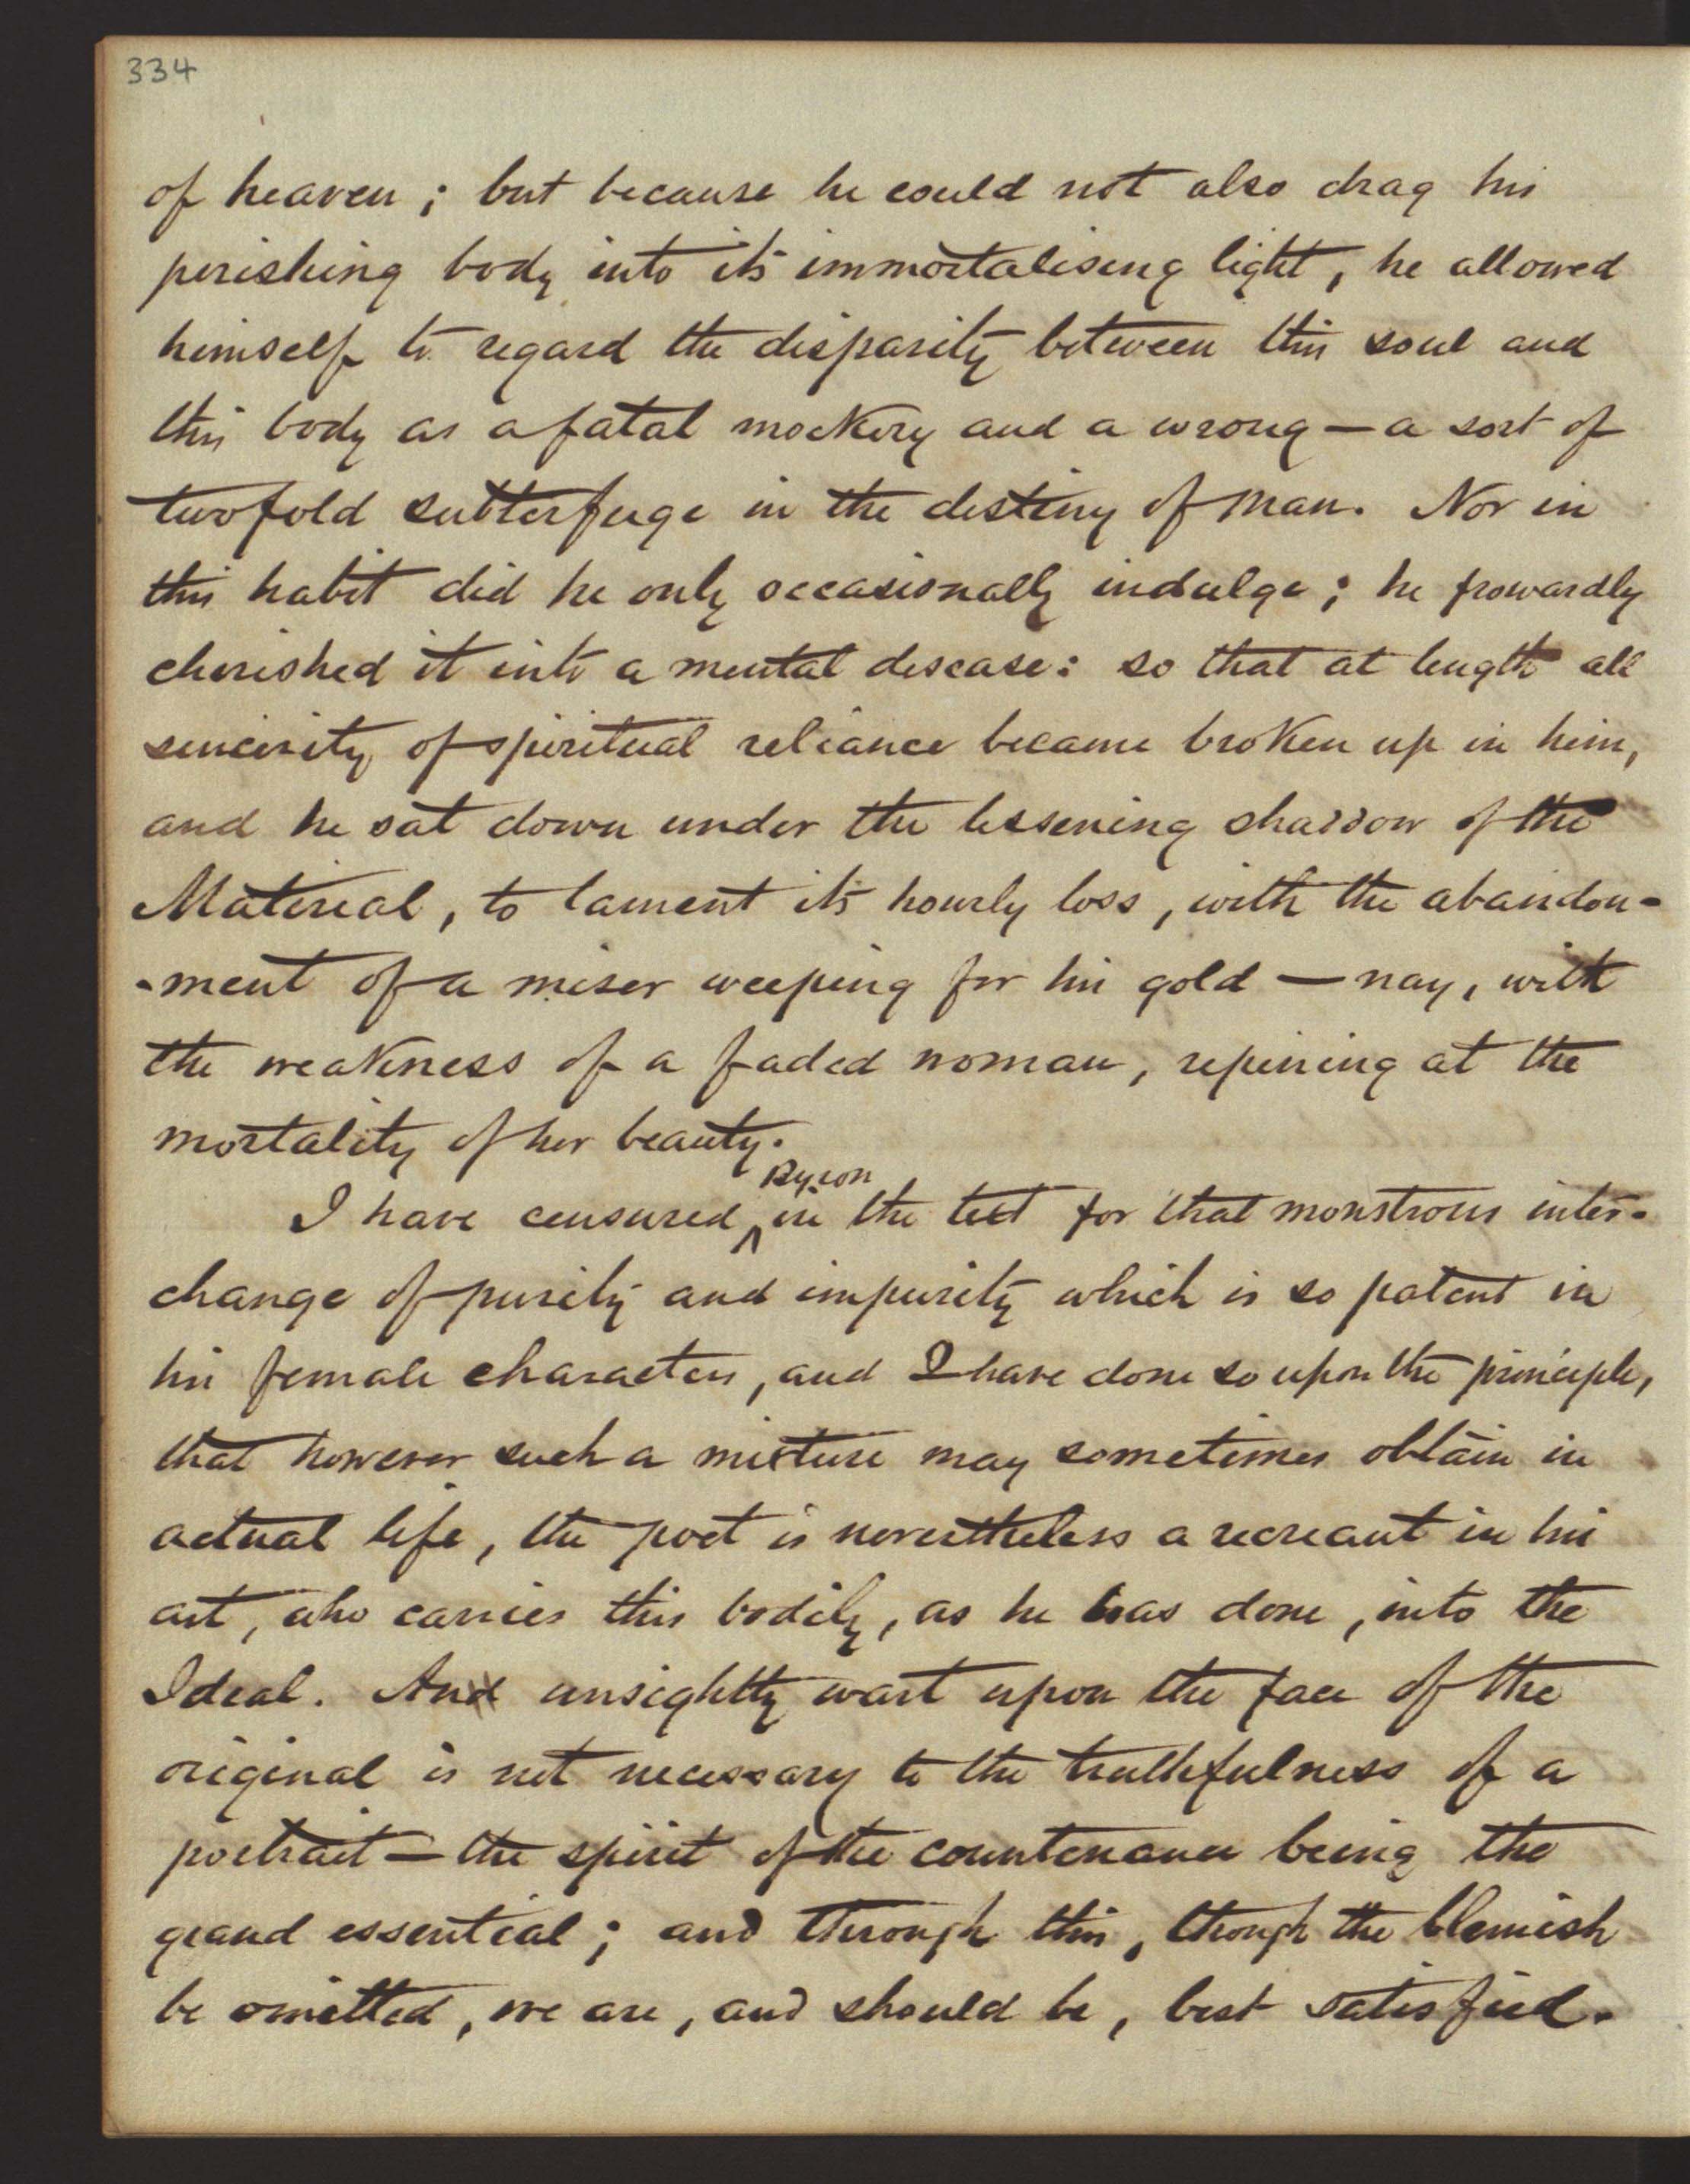 334
of heaven; but because he could not also drag his
perishing body into its immortalising light, he allowed
himself to regard the disparity between this soul and
this body as a fatal mockery and a wrong — a sort of
twofold subterfuge in the destiny of man. Nor in
this habit did he only occasionally indulge; he frowardly
cherished it into a mental disease: so that at length all
sincerity of spiritual reliance became broken up in him,
and he sat down under the lessening shadow of the
Material, to lament its hourly loss, with the abandon-
-ment of a miser weeping for his gold — nay, with
the weakness of a faded woman, repining at the
mortality of her beauty.
Byron
I have censured ^ in the text for that monstrous inter-
change of purity and impurity which is so patent in
his female characters, and I have done so upon the principle,
that however such a mixture may sometimes obtain in
actual life, the poet is nevertheless a recreant in his
art, who carries this bodily, as he has done, into the
Ideal. An unsightly wart upon the face of the
original is not necessary to the truthfulness of a
portrait — the spirit of the countenance being the
grand essential; and through this, though the blemish
be omitted, we are, and should be, best satisfied.